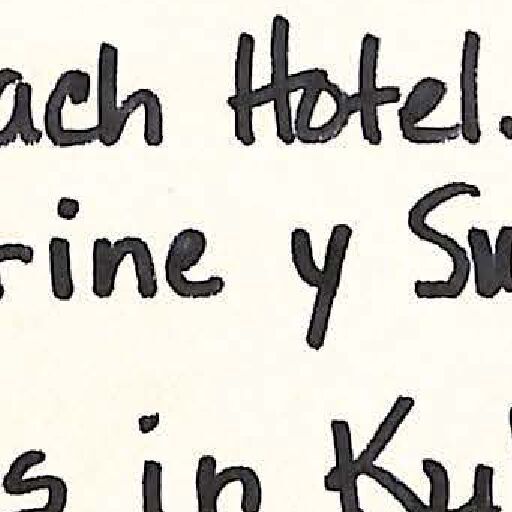 ach Hotel.
rine y Su
s in Ku